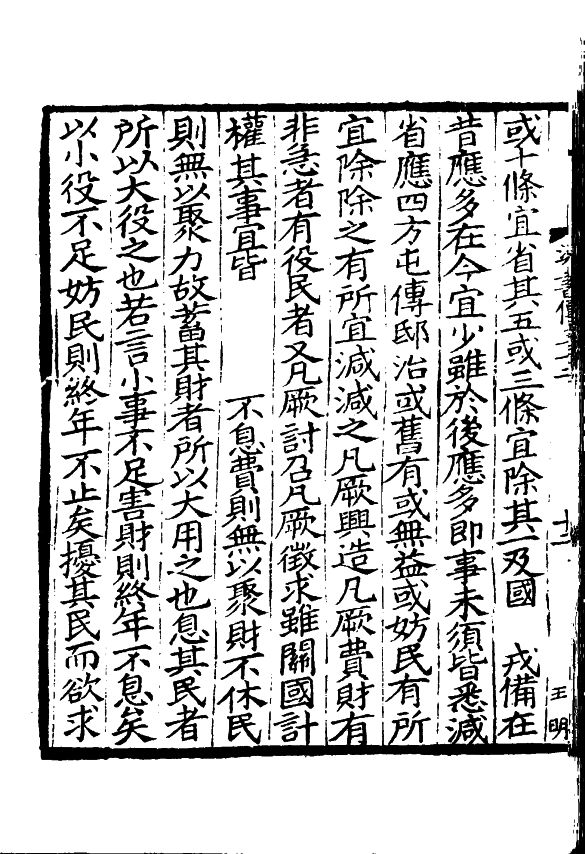 或十條宜省其五或三條宜除其一及國　戎備在
昔應多在今宜少雖於後應多即事未須皆悉減
省應四方屯傳邸治或舊有或無益或妨民有所
宜除除之有所宜減減之凡厥興造凡厥費財有
非急者有役民者又凡厥討召凡厥徵求雖關國計
權其事宜皆　　不息費則無以聚財不休民
則無以聚力故蓄其財者所以大用之也息其民者
所以大役之也若言小事不足害財則終年不息矣
以小役不足妨民則終年不止矣擾其民而欲求
王明